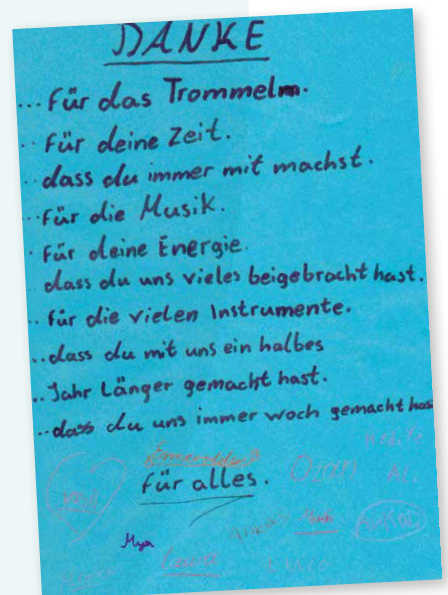 DANKE
... für das Trommelm.
.. Für deine Zeit.
.. dass du immer mit machst.
.. Für die Musik.
. Für deine Energie.
dass du uns vieles beigebracht hast.
.. für die vielen Instrumente.
.. dass du mit uns ein halbes
.. Jahr Länger gemacht hast.
.. dass du uns immer wach gemacht has
Für alles.
Ozan